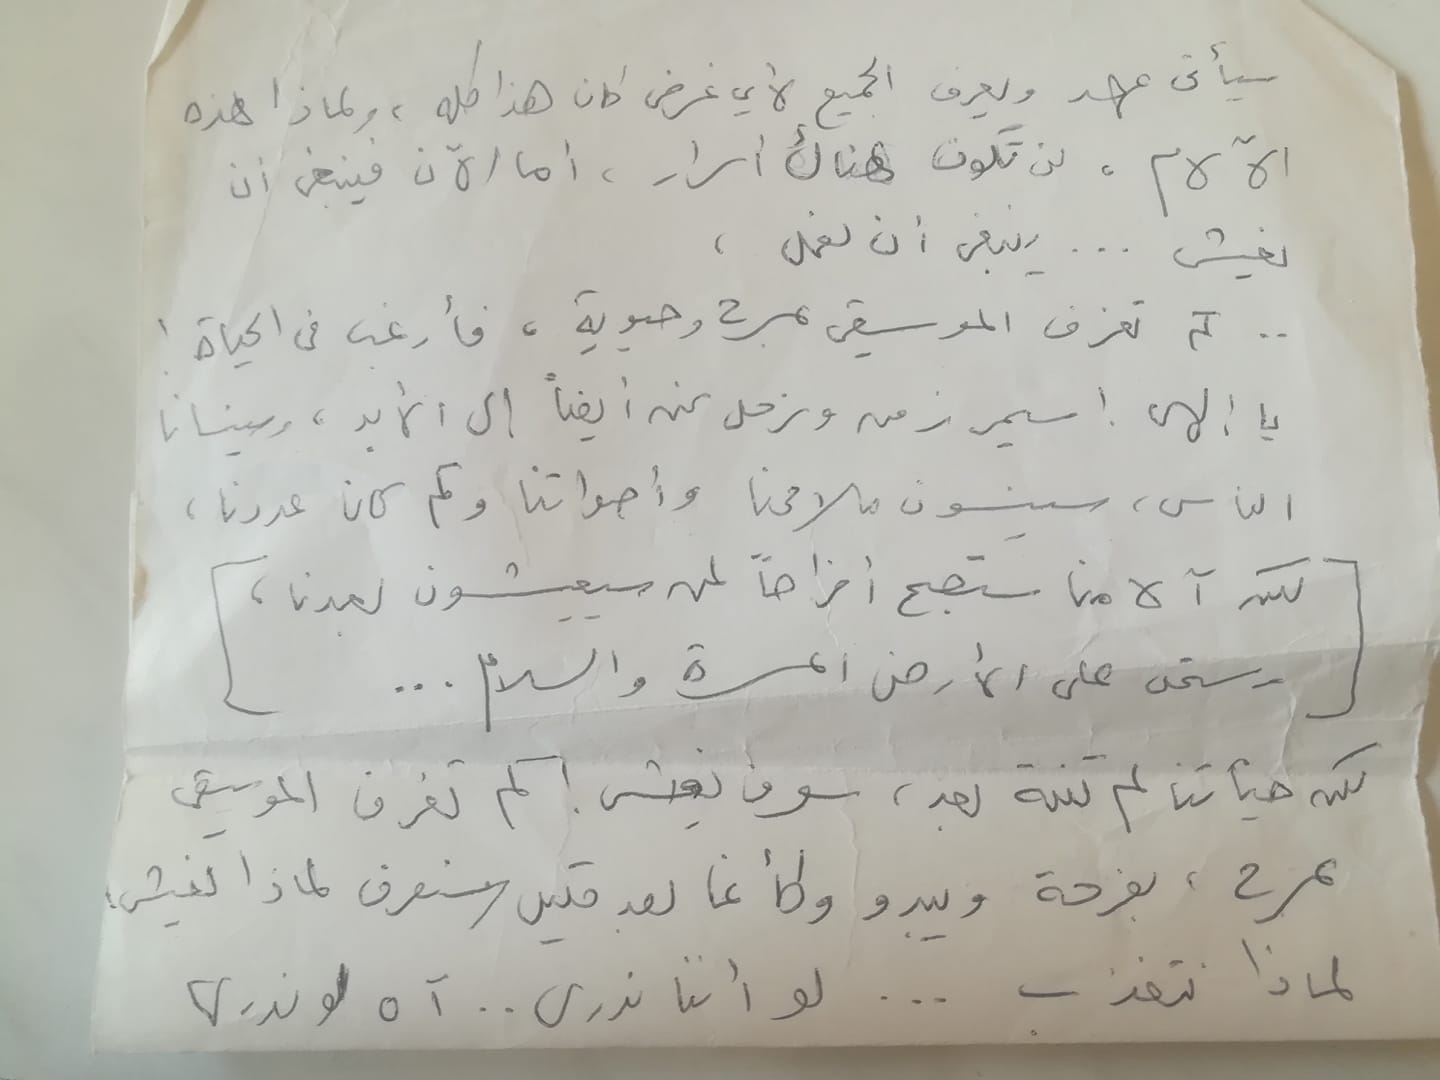 سيأتى عهد ويعرف الجميع لأي غرض كان هذا كله ، ولماذا هذه
الآلام ، لن تكون هناك أسرار ، أما الآن فينبغى أن
نعيش ... ينبغى أن نعمل ،
.. كم تعزف الموسيقى بمرح وحيوية ، فأرغب فى الحياة !
يا إلهى ! سيمر زمن ونرحل نحن أيضاً إلى الأبد ، وسينسانا
الناس ، سينسون ملامحنا وأصواتنا وكم كان عددنا ،
[ لكن آلامنا ستصبح أفراحاً لمن سيعيشون بعدنا ،
وستحل على الأرض المسرة والسلام ... ]
لكن حياتنا لم تنته بعد ، سوف نعيش ! كم تعزف الموسيقى
بمرح ، بفرحة ويبدو وكأنما بعد قليل سنعرف لماذا نعيش ،
لماذا نتعذب ... لو أننا ندرى .. آه لو ندرى